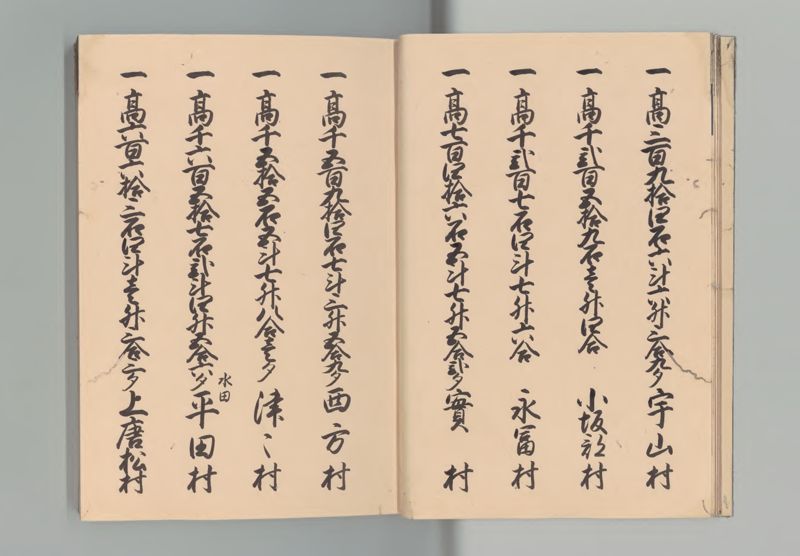 一 高三百九拾四石六斗六升三合九夕 宇山村
一 高千弐百五拾九石壱升四合 小坂部村
一 高千弐百七石四斗七升六合 永冨村
一 高七百四拾六石五斗七升五合弐夕 實村
一 高千五百九拾四石七斗三升五合九夕 西方村
一 高千五拾五石五斗七升八合壱夕 津々村
一 高千六百五拾七石弐斗四升五合六夕 平田村
水田
一 高六百六拾三石四斗壱升三合三夕 上唐松村